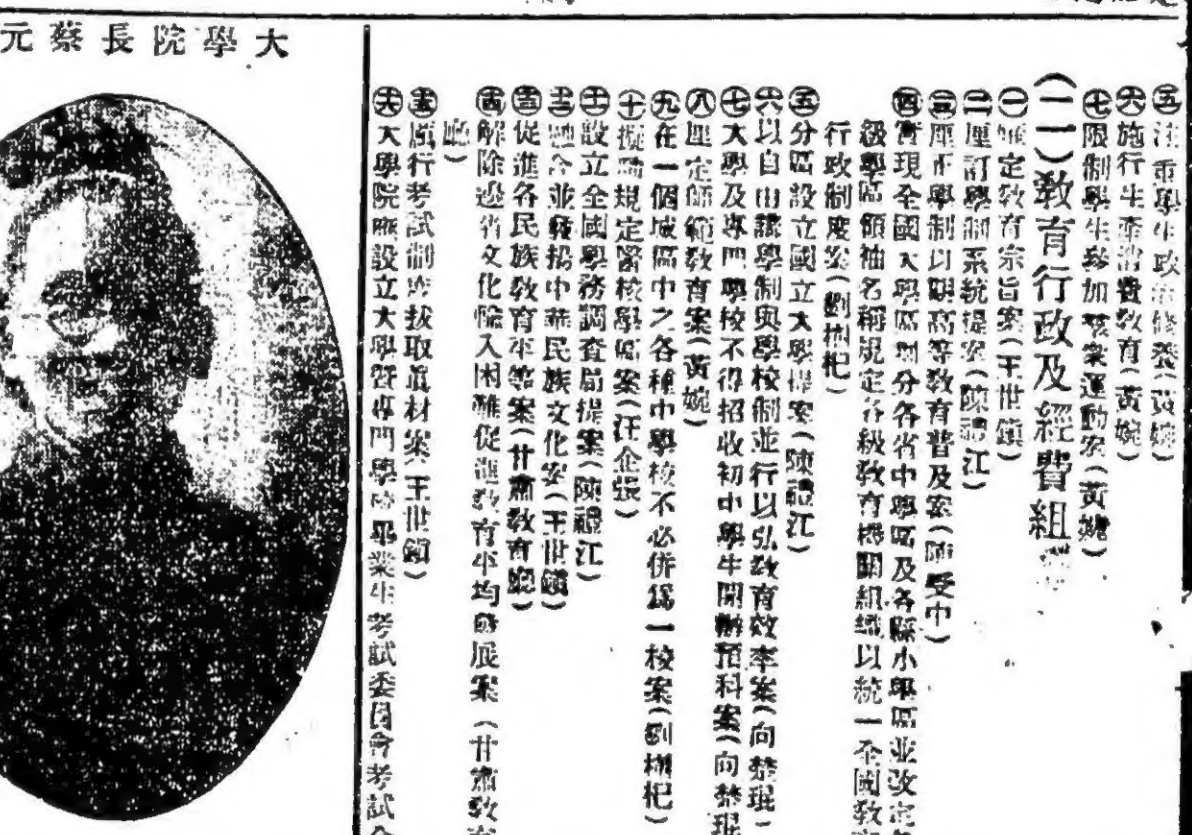 大學院長蔡元
㊄注重學生政治修養(黃婉)
㊅施行生產消費教育(黃婉)
㊆限制學生參加黨業運動案(黃婉)
(二)教育行政及經費組
㊀確定教育宗旨案(王世鎮)
㊁厘訂學制系統提案(陳禮江)
㊂厘正學制以期高等教育普及案(陳受中)
㊃實現全國大學區劃分各省中學區及各縣小學區並改定各
級學區領袖名稱規定各級教育機關組織以統一全國教育
行政制度案(劉樹杞)
㊄分區設立國立大學提案(陳禮江)
㊅以自由講學制與學校制並行以弘教育效率案(向楚琨)
㊆大學及專門學校不得招收初中學生開辦預科案(向楚琨
㊇厘定師範教育案(黃婉)
㊈在一個城區中之各種中學校不必併爲一校案(劉樹杞)
㊉擬請規定醫校學區案(汪企張)
設立全國學務調查局提案(陳禮江)
融合並發揚中華民族文化案(王世鎮)
促進各民族教育平等案(甘肅教育廳)
解除邊省文化輸入困難促進教育平均發展案(甘肅教育
廳)
厲行考試制度拔取眞材案(王世鎮)
大學院應設立大學暨專門學校畢業生考試委員會考試全